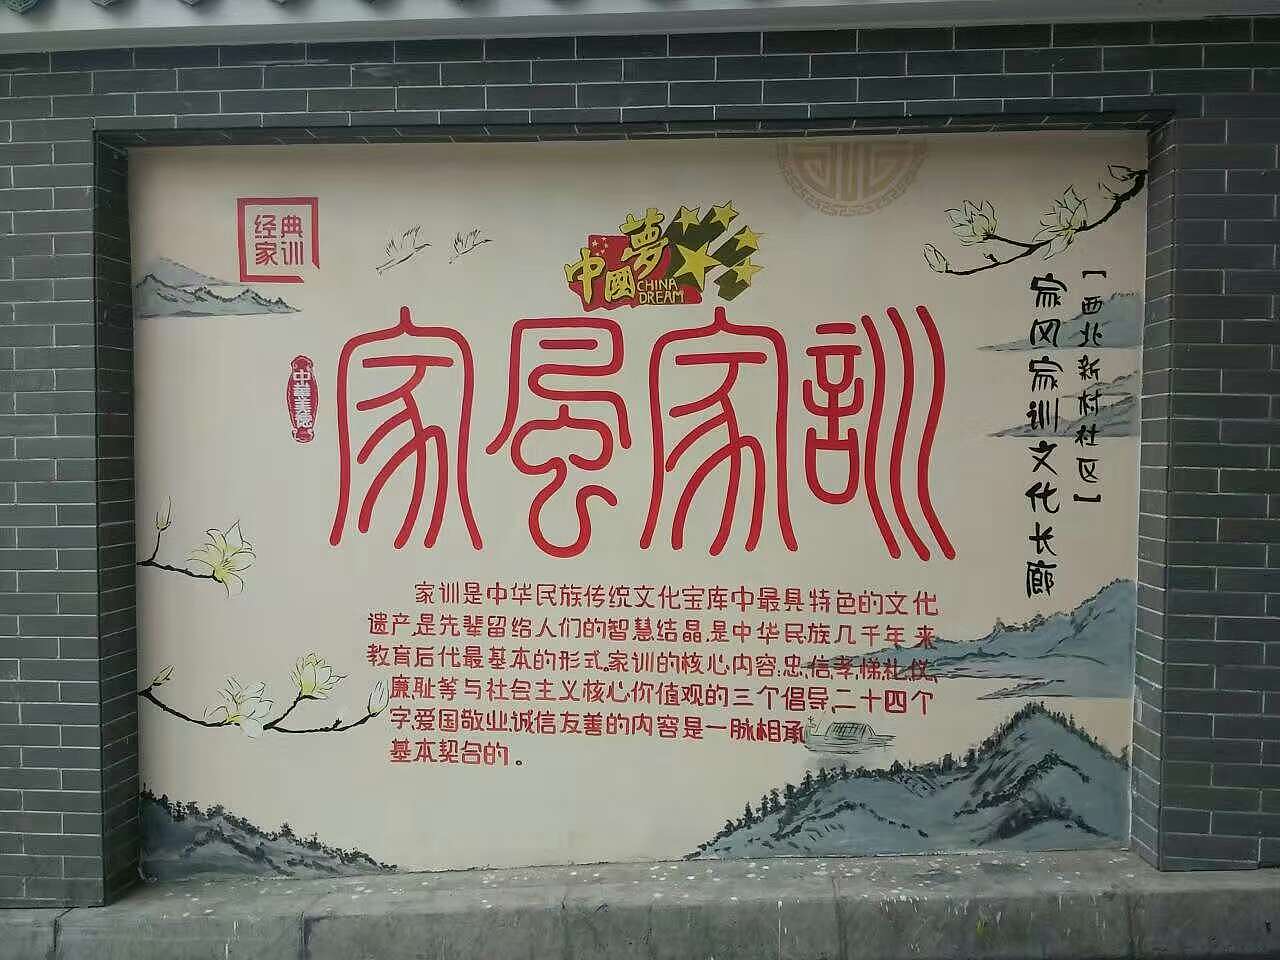 经典
家训
中國夢
CHINA
DREAM
中華美德
家風家訓
[西北新村社区]
家风家训文化长廊
家训是中华民族传统文化宝库中最具特色的文化
遗产,是先辈留给人们的智慧结晶,是中华民族几千年来
教育后代最基本的形式。家训的核心内容:忠、信、孝、悌、礼、仪、
廉、耻等与社会主义核心价值观的三个倡导,二十四个
字,爱国敬业,诚信友善的内容是一脉相承
基本契合的。